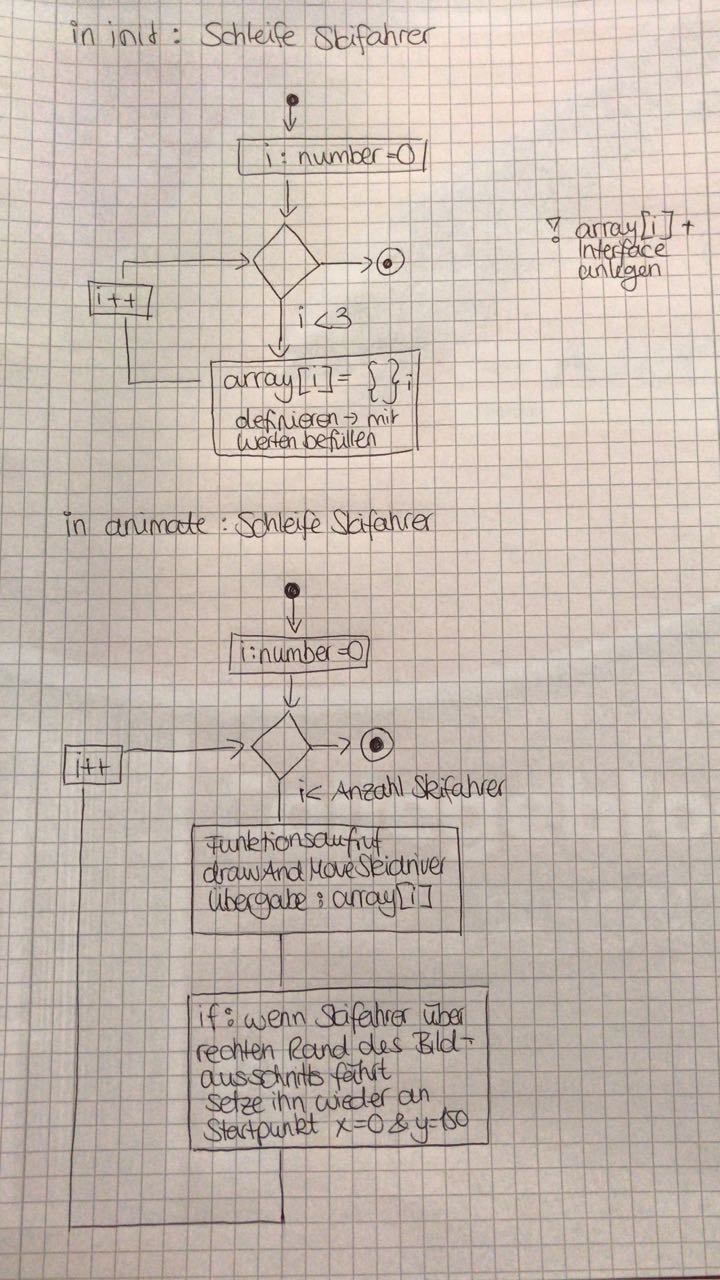 in init : Schleife Skifahrer
i : number = 0
! array[i] +
Interface
anlegen
i++
i < 3
array[i] = { };
definieren → mit
Werten befüllen
in animate : Schleife Skifahrer
i : number = 0
i++
i < Anzahl Skifahrer
Funktionsaufruf
drawAndMoveSkidriver
übergabe : array[i]
if : wenn Skifahrer über
rechten Rand des Bild-
ausschnitts fährt
setze ihn wieder an
Startpunkt x=0 & y=150